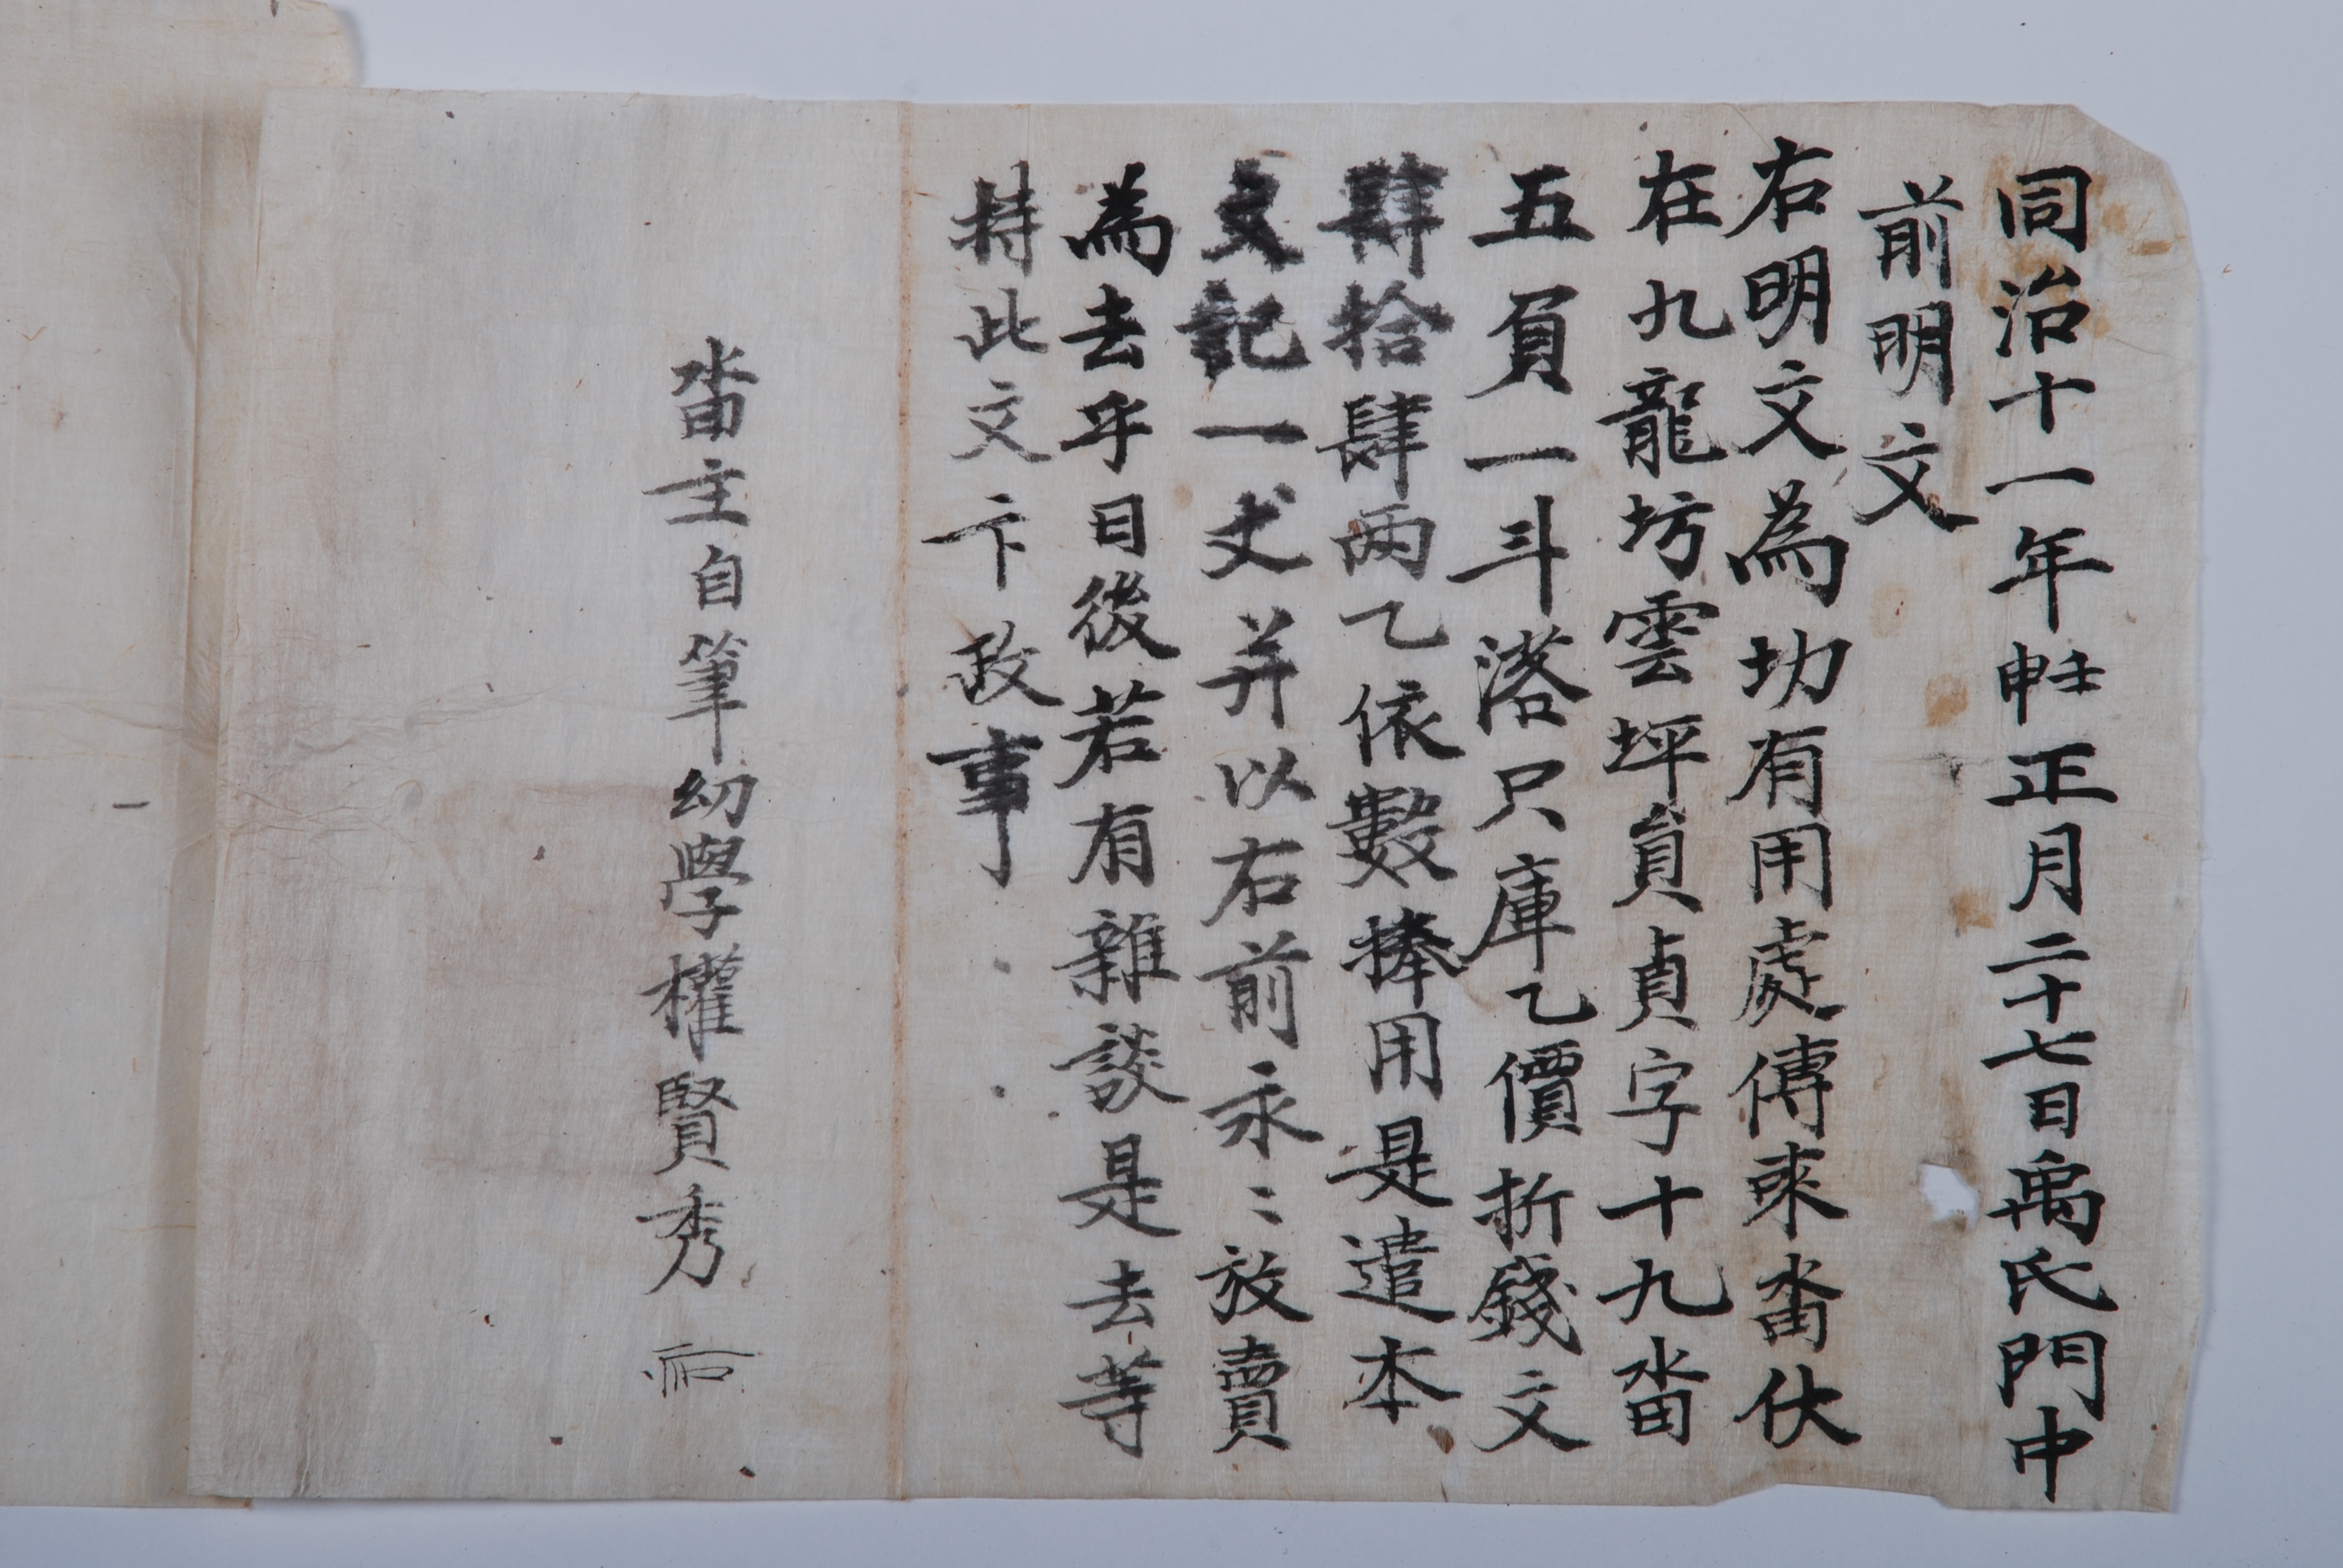 同治十一年壬申正月二十七日禹氏門中
前明文
右明文為功有用處傳來畓伏
在九龍坊雲坪員貞字十九畓
五負一斗落只庫乙價折錢文
肆拾肆兩乙依數捧用是遣本
文記一丈并以右前永〻放賣
為去乎日後若有雜談是去等
持此文卞政事
畓主自筆幼學權賢秀